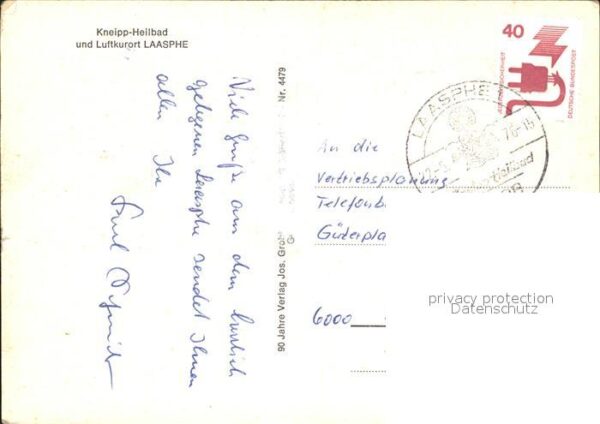 Kneipp-Heilbad
und Luftkurort LAASPHE
Viele Grüße aus dem herrlich
gelegenen Laasphe sendet Ihnen
allen Ihr
90 Jahre Verlag Jos.
Nr. 4479
40
DEUTSCHE BUNDESPOST
LAASPHE
An die
Vertriebsplanung
Telefonb
Güterpla
6000
privacy protection
Datenschutz